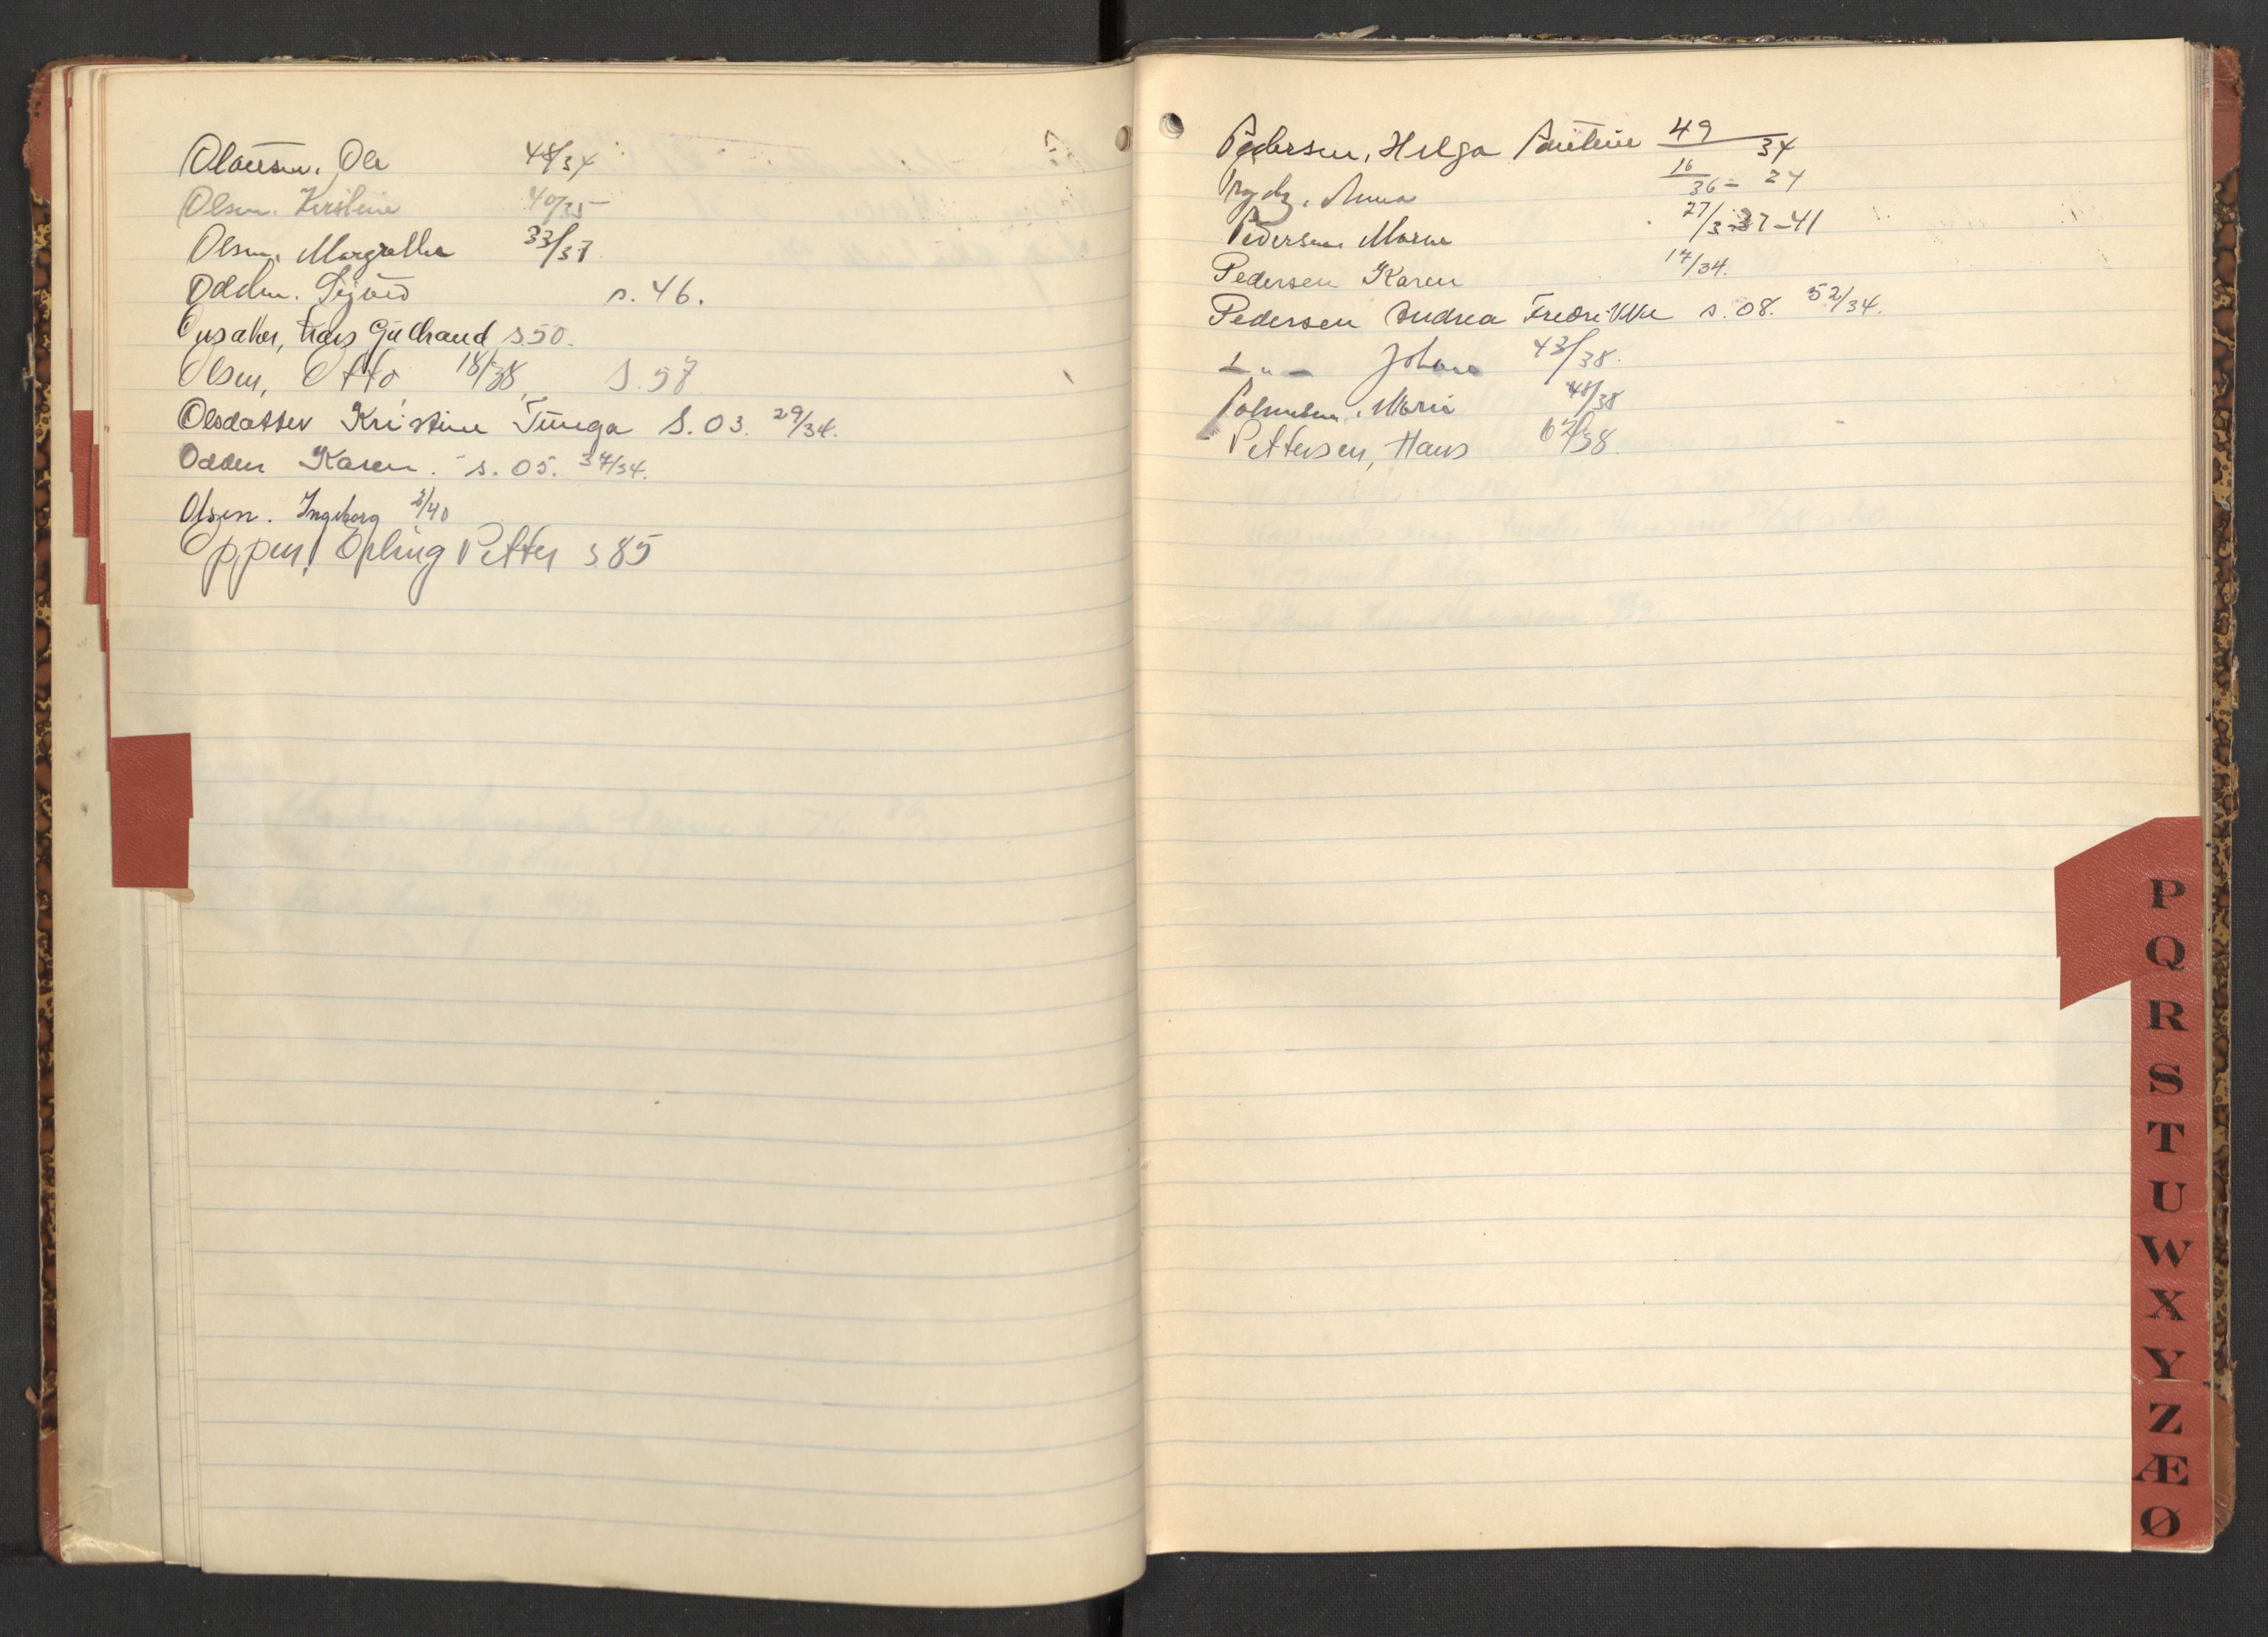 Olaussen, Ole 48/34
Olsen. Kirstine 40/35
Olsen, Margrethe 33/37
Odden. Sigurd s. 46.
Opsaker, Hans Gulbrand s.50.
Olsen, Otto 18/38, S.57
Olsdatter Kristine Tunga S.03. 29/34.
Odden Karen. s. 05. 37/34.
Olsen. Ingeborg 2/40
Oppen, Erling Petter s 85
Pedersen, Helga Pauline 49/34
Anna 16/36 - 24
Pedersen Maren 27/3-37-41
Pedersen Karen 17/34.
Pedersen Andrea Fredrikke s. 08. 52/34.
- " - Johan 43/38.
Marie 48/38
Pettersen, Hans 62/38.
P
Q
R
S
T
U
W
X
Y
Z
Æ
Ø